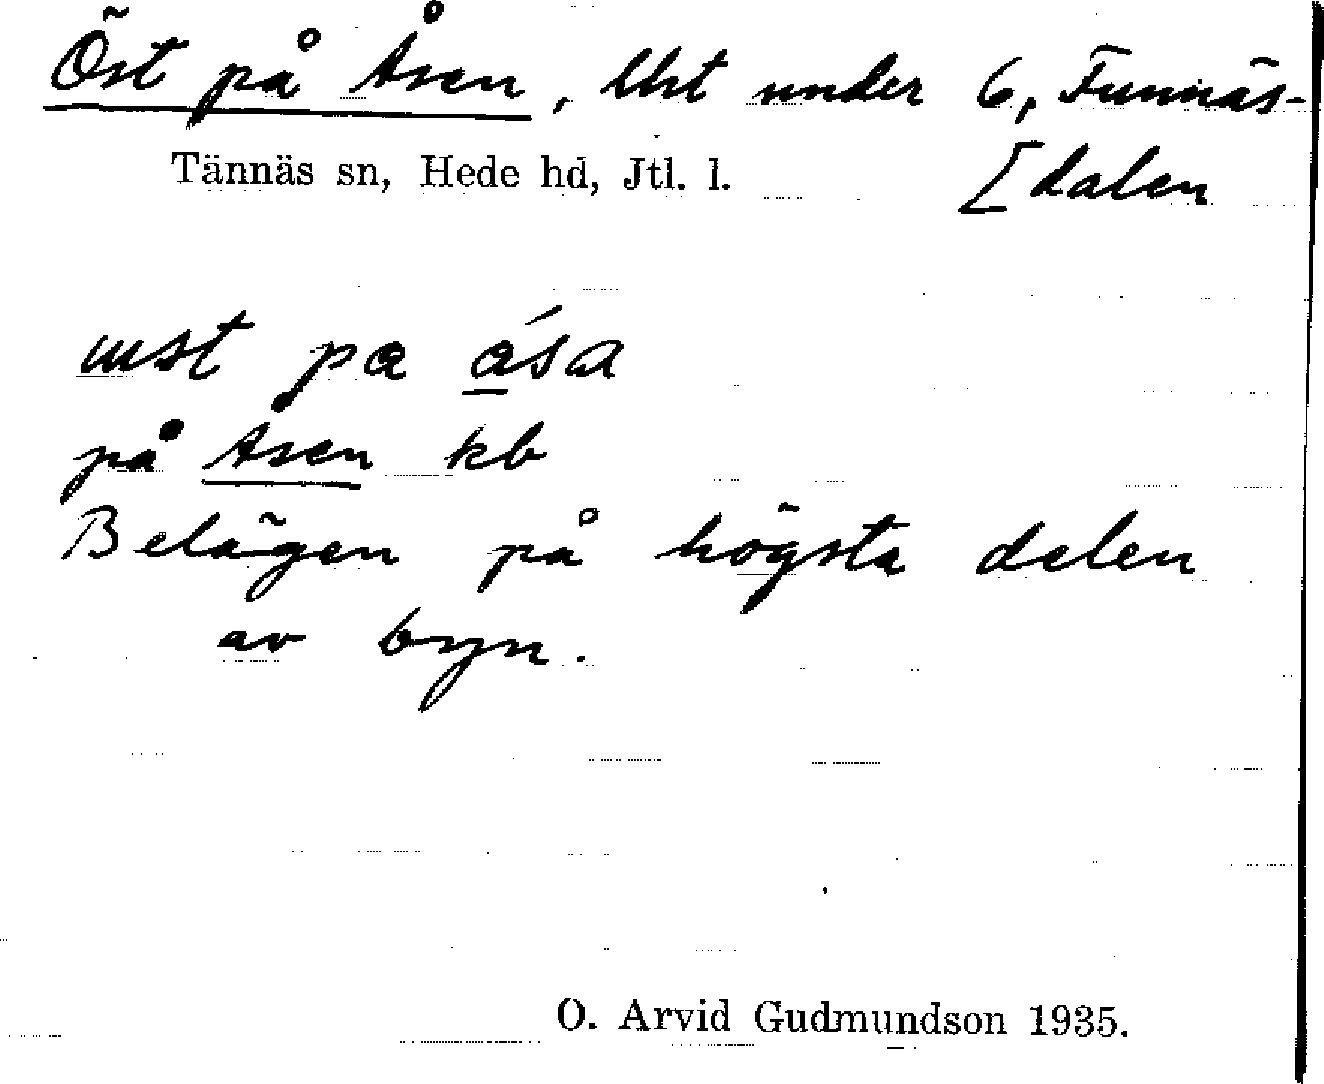 Öst på Åsen, Ust under 6, Funnäs-
[dalen
Tännäs sn, Hede hd, Jtl. l.
ust pa ása
på Åsen kb
Belägen på högsta delen
av byn.
O. Arvid Gudmundson 1935.